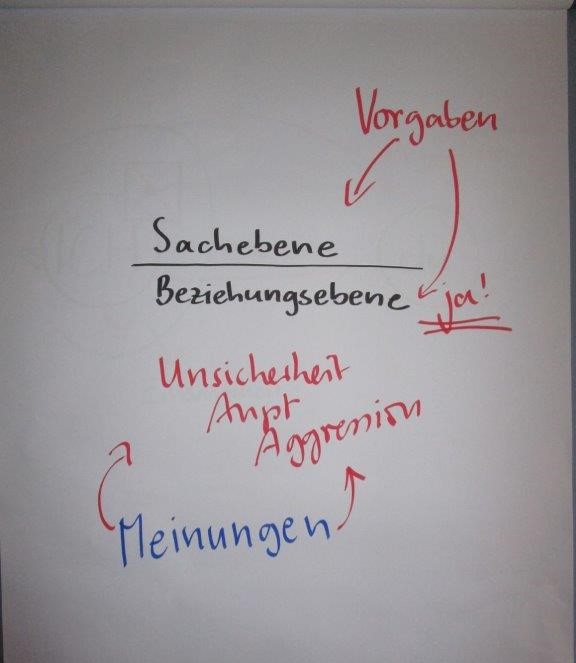 Vorgaben
Sachebene
Beziehungsebene ja!
Unsicherheit
Angst
Aggression
Meinungen